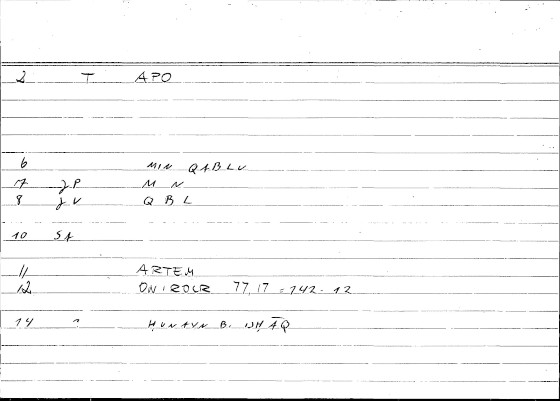 2 T APO
6 MIN QABLU
7 JP M N
8 JV Q B L
10 SA
11 ARTEM
12 ONIROCR 77,17 = 142-12
14 HUNAYN B. ISHĀQ